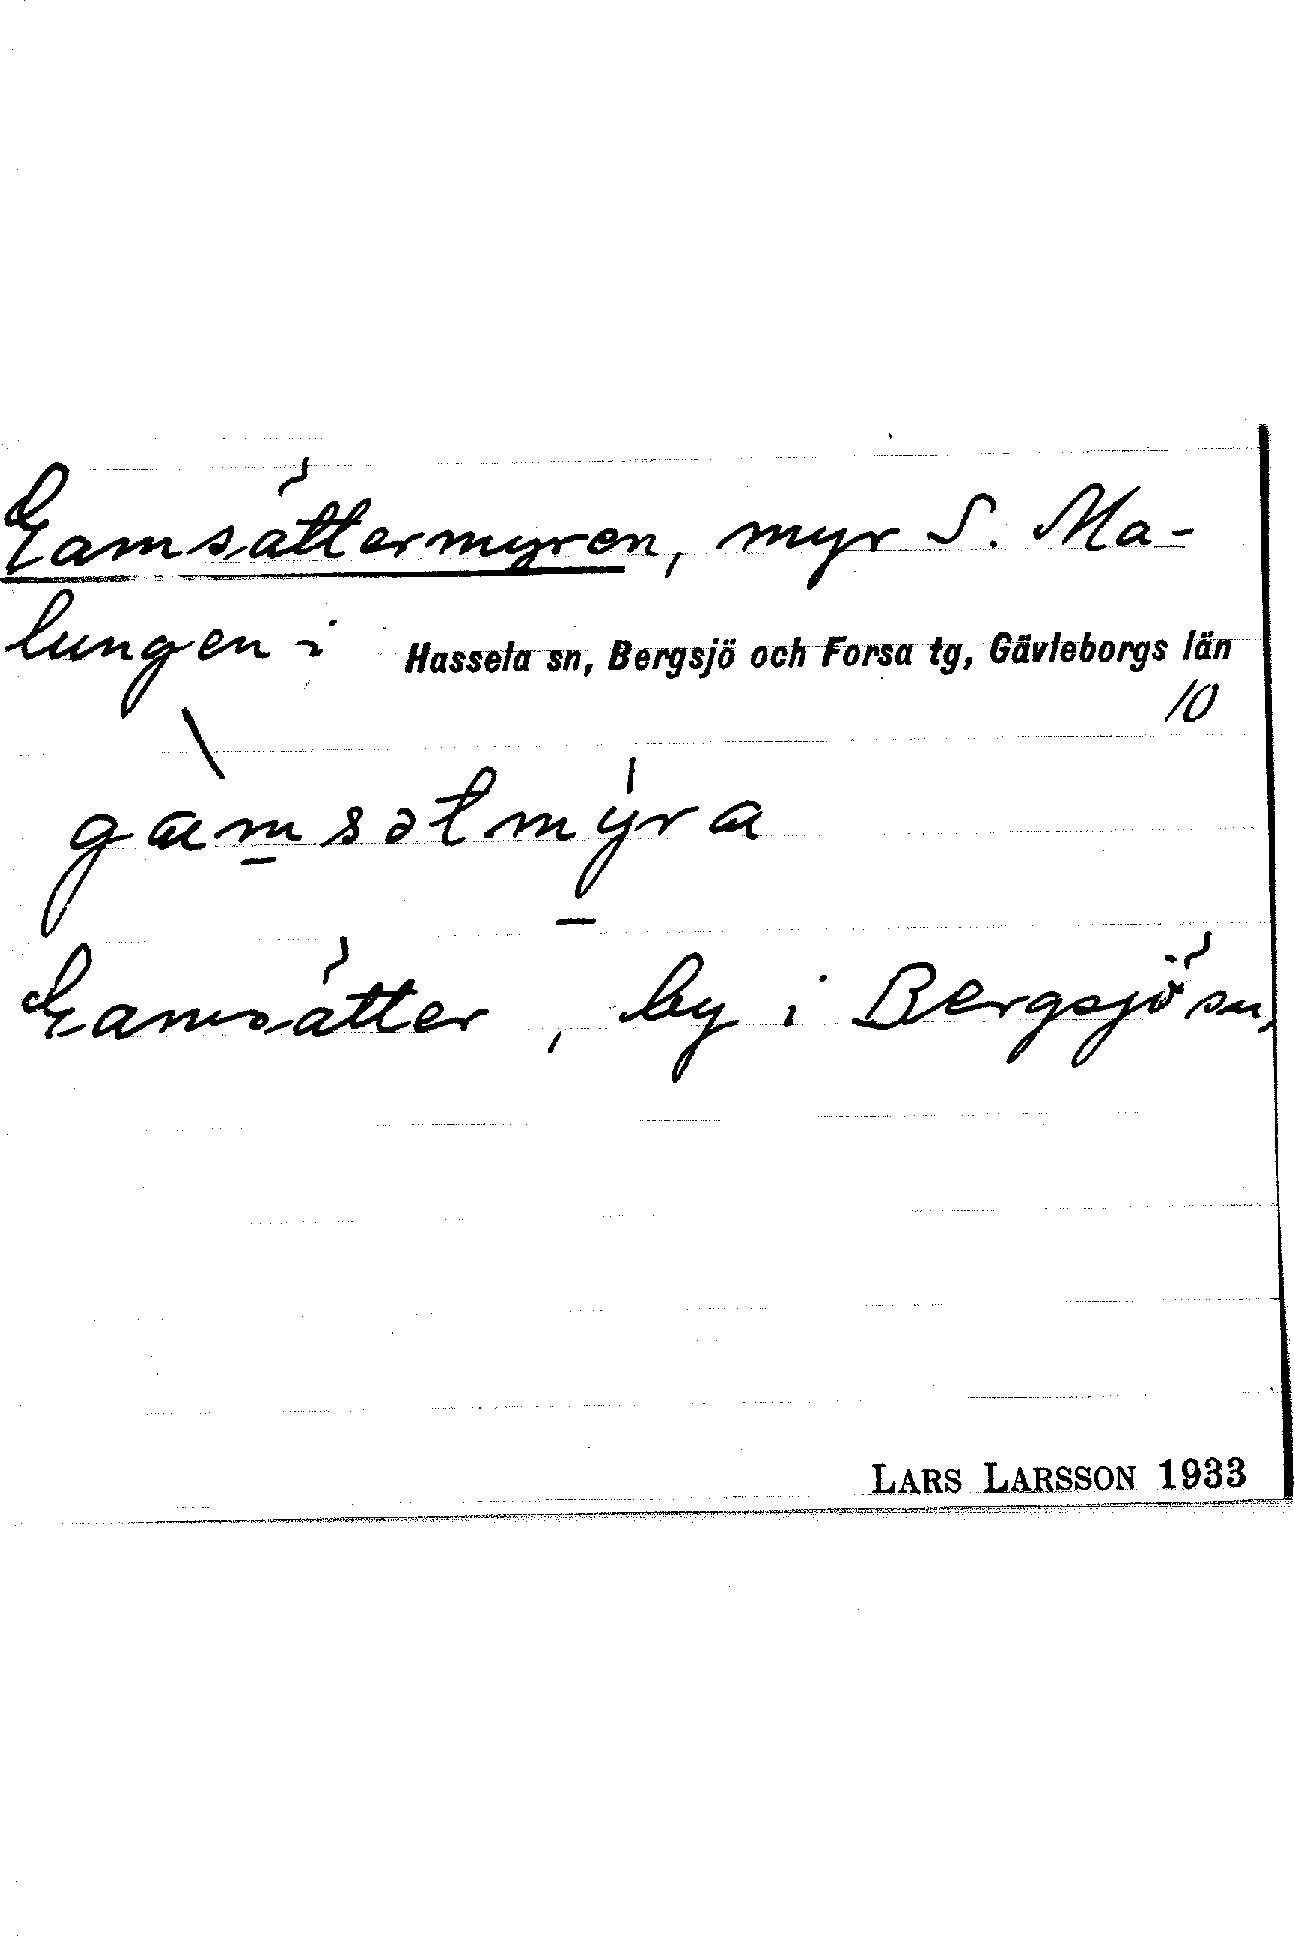 Gamsättermyren, myr S. Ma-
lungen i Hassela sn, Bergsjö och Forsa tg, Gävleborgs län
10
gamsətmyra
Gamsätter, by i Bergsjö sn,
LARS LARSSON 1933